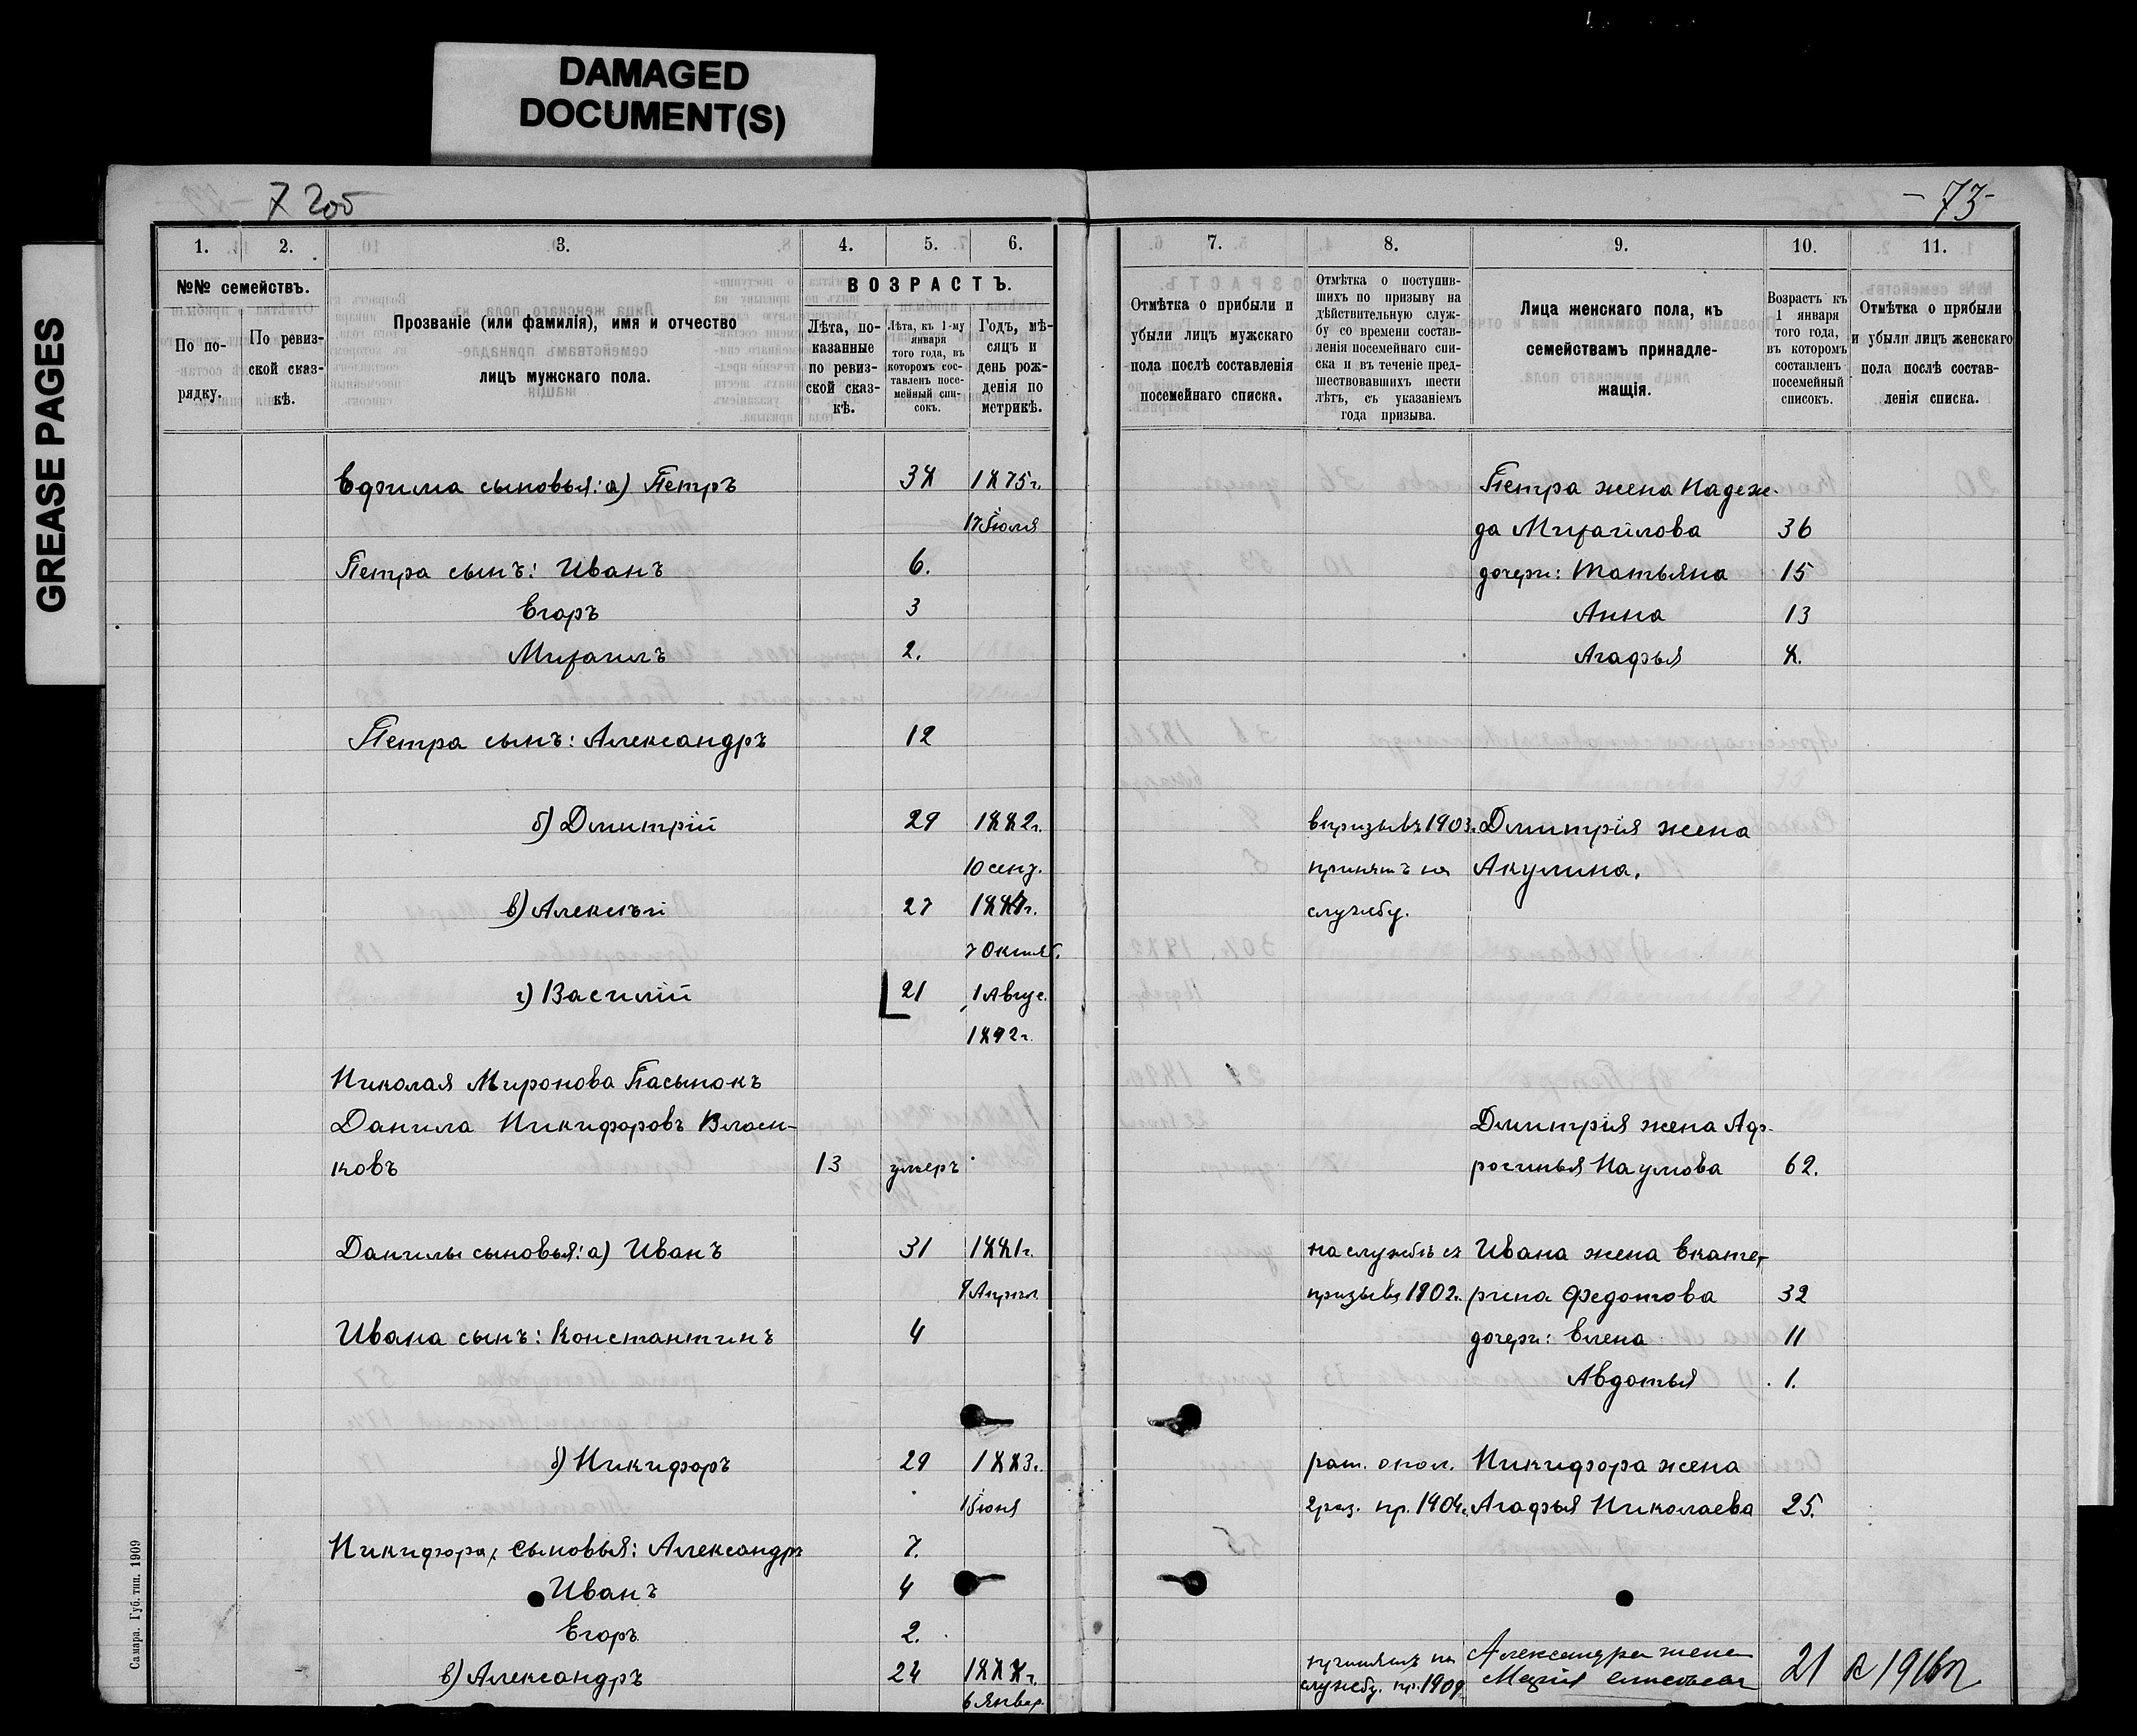 DAMAGED
DOCUMENT(S)
GREASE PAGES
205
- 73 -
1. 2. 3. 4. 5. 6.
№№ семействъ.
По по-
рядку.
По ревиз-
ской сказ-
кѣ.
Прозваніе (или фамилія), имя и отчество
лицъ мужскаго пола.
ВОЗРАСТЪ.
Лѣта, по-
казанные
по ревиз-
ской сказ-
кѣ.
Лѣта, къ 1-му
января
того года, въ
которомъ сос-
тавленъ посе-
мейный спи-
сокъ.
Годъ, мѣ-
сяцъ и
день рож-
денія по
метрикѣ.
7. 8. 9. 10. 11.
Отмѣтка о прибыли и
убыли лицъ мужскаго
пола послѣ составленія
посемейнаго списка.
Отмѣтка о поступив-
шихъ по призыву на
дѣйствительную служ-
бу со времени состав-
ленія посемейнаго спи-
ска и въ теченіе пред-
шествовавшихъ шести
лѣтъ, съ указаніемъ
года призыва.
Лица женскаго пола, къ
семействамъ принадле-
жащія.
Возрастъ къ
1 января
того года,
въ которомъ
составленъ
посемейный
списокъ.
Отмѣтка о прибыли
и убыли лицъ женскаго
пола послѣ состав-
ленія списка.
Ефима сыновья: а) Петръ 38 1875г.
17 Іюля
Петра сынъ: Иванъ 6.
Егоръ 3
Михаилъ 2.
Петра сынъ: Александръ 12
б) Дмитрій 29 1882г.
10 сент.
в) Алексѣй 27
7 Октяб.
г) Василій 21 1 Авгус.
1892г.
Николая Миронова Пасынокъ
Данила Никифоровъ Власен-
ковъ 13 умеръ
Данилы сыновья: а) Иванъ 31 1881г.
9 Апрѣл.
Ивана сынъ: Константинъ 4
б) Никифоръ 29 1883г.
1 Іюня
Никифора, сыновья: Александръ 7.
Иванъ 4
Егоръ 2.
в) Александръ 24 1888г.
6 Январ.
Петра жена Надеж-
да Михайлова 36
дочери: Татьяна 15
Анна 13
Агафья 8.
въ призывѣ 1903. Дмитрія жена
принятъ на Акулина.
службу.
Дмитрія жена Аф-
росинья Наумова 62.
на службѣ съ Ивана жена Екате-
призыва 1902. рина Федотова 32
дочери: Елена 11
Авдотья 1.
рат. опол. Никифора жена
2 раз. пр. 1904. Агафья Николаева 25.
принятъ на Александра жена
службу. пр. 1909. Марія 21 в 1916г
Самара. Губ. тип. 1909